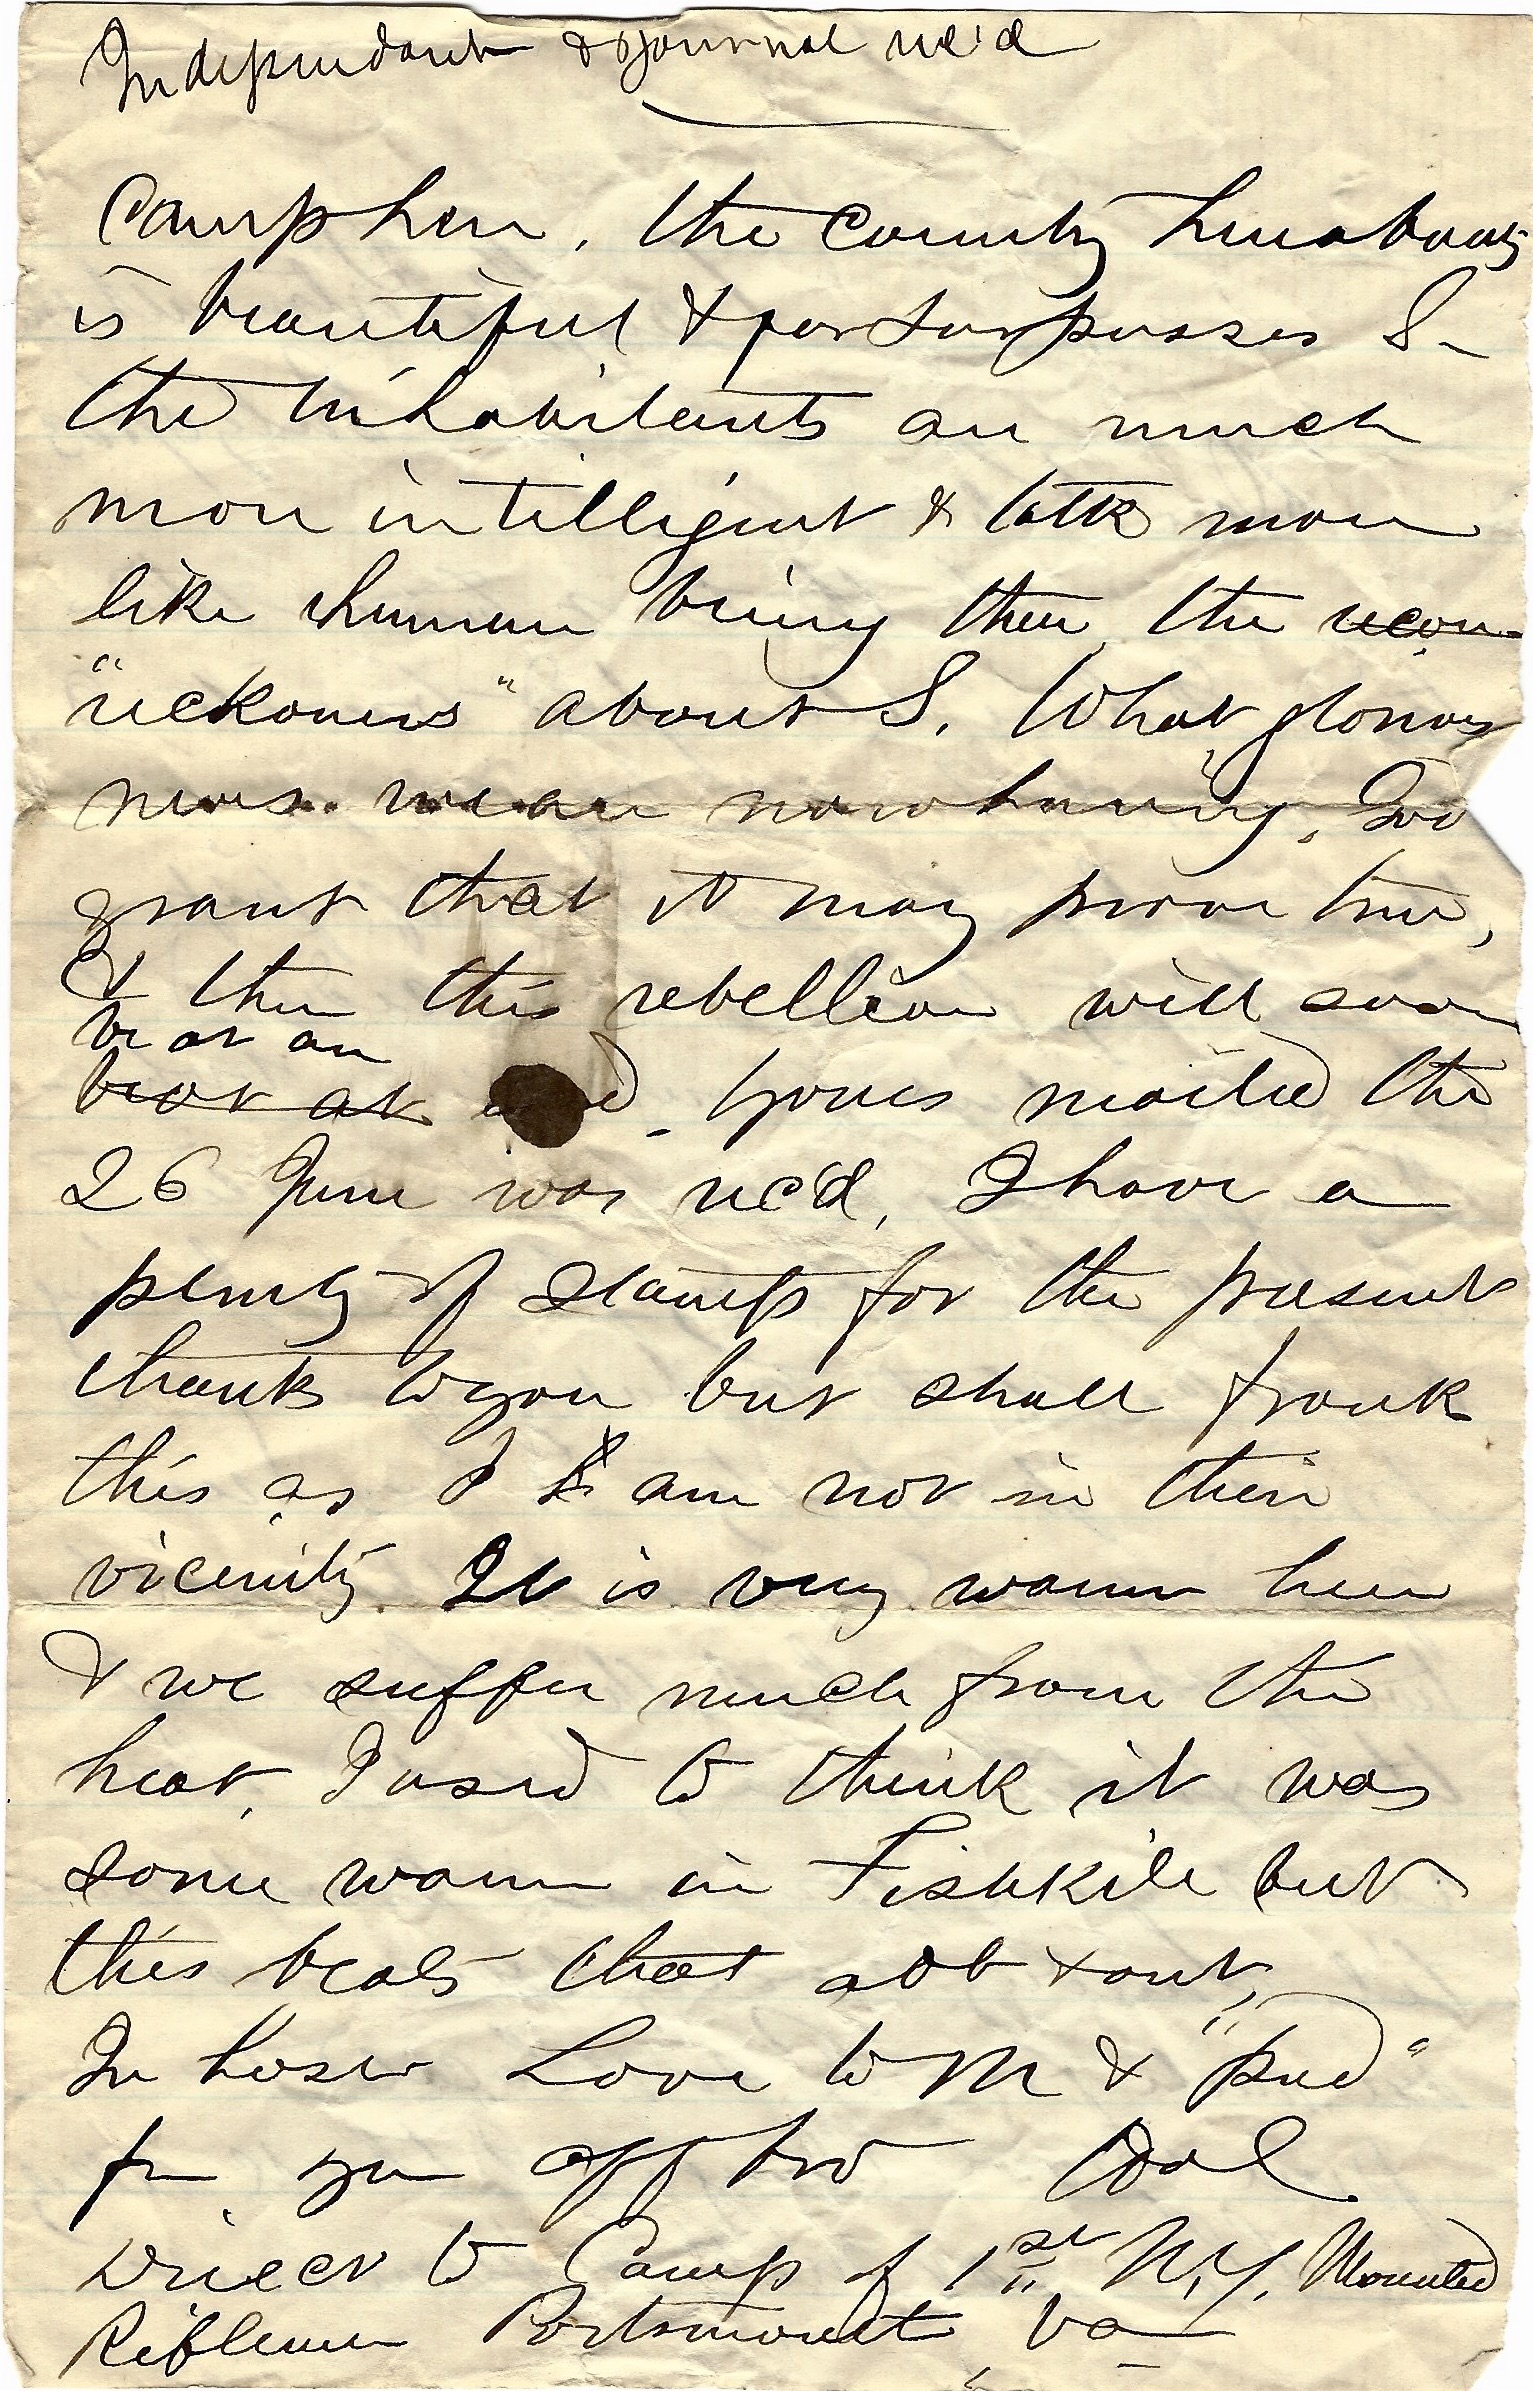 Independant & Journal rec'd
Camp here. the Country hereabouts
is beautiful & far surpasses S-
the inhabitants are much
more intelligent & talk more
like human being then the recon-
"reckoners" about S. What glorious
news we are now having. God
grant that it may prove true,
& then this rebellion will soon
be at an
beat at end. Yours mailed the
26 June was rec'd, I have a
plenty of stamps for the present
thanks to you but shall frank
this as I am not in their
vicinity. It is very warm here
& we suffer much from the
heat, I used to think it was
some warm in Fishkill but
this beats that all out,
In haste Love to M & "pud"
fm yr aff bro
Direct to Camp of 1st N.Y. Mounted
Riflemen Portsmouth Va